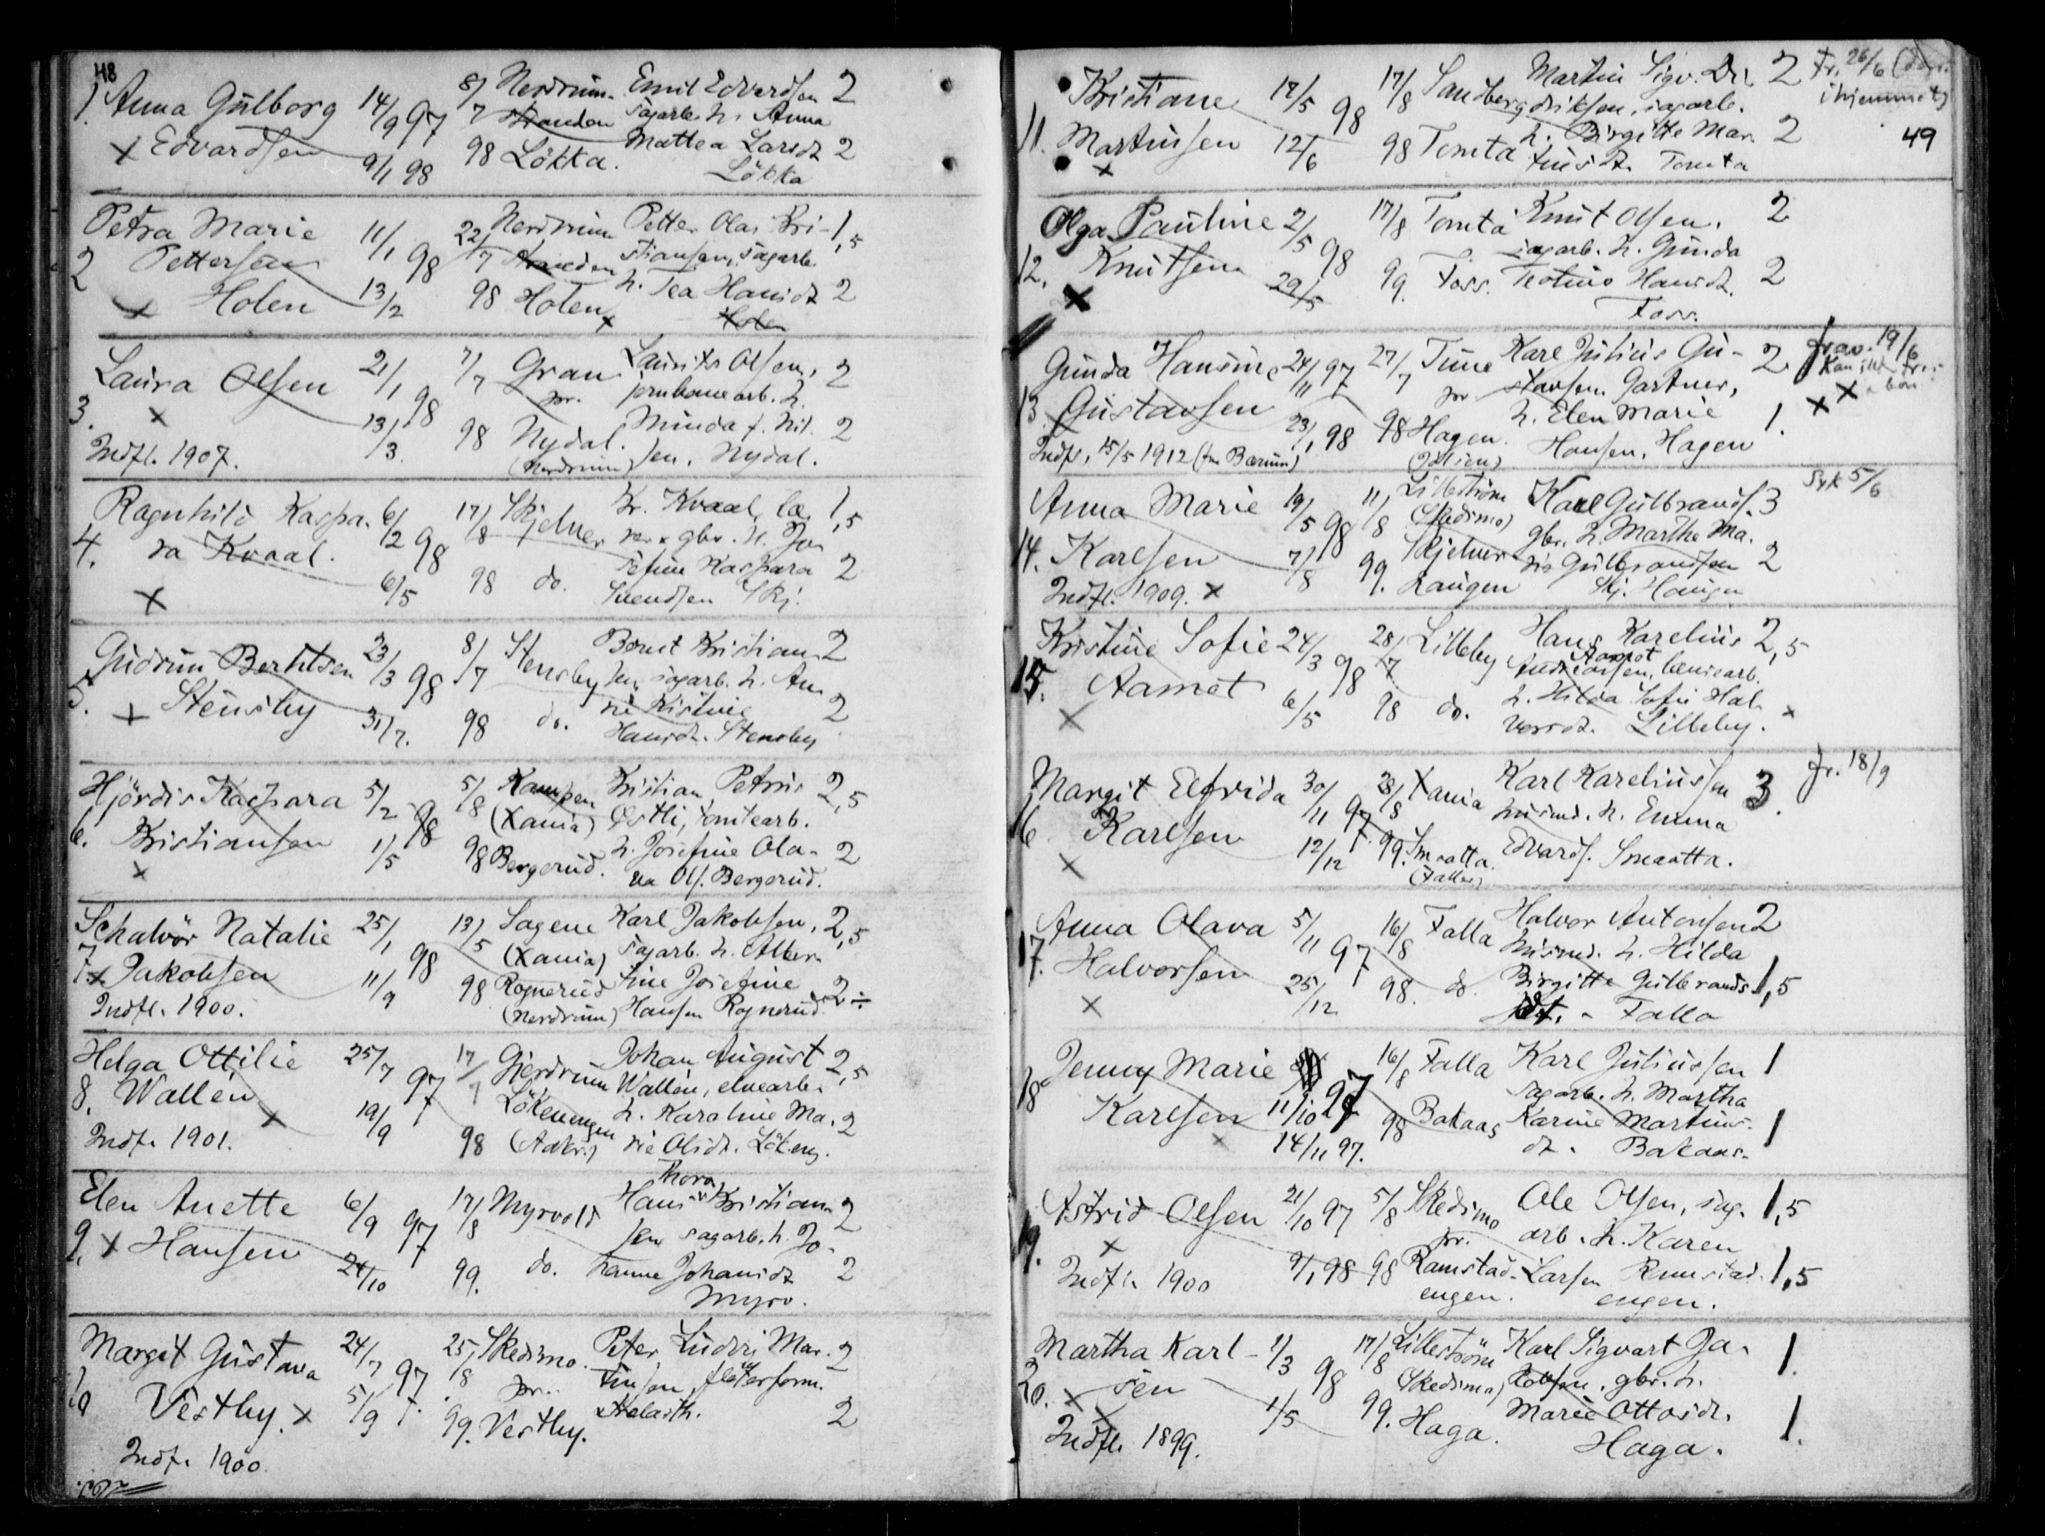 48
1. Anna Gulborg 14/9 97 8/7 Nordrum- Emil Edvardsen 2
Stranden sagarb. h. Anna
x Edvardsen 9/1 98 98 Løkka. Mathea Larsdt 2
Løkka
Petra Marie 11/1 98 22/7 Nordrum Petter Olai Kri- 1,5
stiansen, sagarb.
2 Pettersen
x Holen 13/2 98 Holen x h. Tea Hansdt 2
Holen
Laura Olsen 21/1 98 7/7 Gran Laurits Olsen, 2
pr. jernbanearb. h.
3. x 13/3 98 Nydal. Minda f. Nil- 2
Indfl. 1907. (Nordrum) sen, Nydal.
Ragnhild Kaspa- 6/2 98 17/8 Skjelver Kr. Kvaal, læ- 1,5
4. ra Kvaal. rer x gbr. h. Jo-
6/5 98 do. sefine Kaspara 2
x Svendsen Skj.
Gudrun Berntsen 23/3 98 8/7 Stensby Bernt Kristian- 2
5. sen, sagarb. h. An-
x Stensby 31/7. 98 do. ne Kistine 2
Hansdt. Stensby
Hjördis Kaspara 5/2 98 5/8 Kampen Kristian Petrus 2,5
(Xania) Østli, tomtearb.
6. Kristiansen 1/5 98 Bergerud. h. Josefine Ola- 2
x va Ols. Bergerud.
Schalvör Natalie 25/1 98 13/5 Sagene Karl Jakobsen, 2,5
(Xania) sagarb. h. Alber-
7. x Jakobsen 11/9 98 Rognerud tine Josefine 2 ÷
Indfl. 1900. (Nordrum) Hansen Rognerud.
Helga Ottilie 25/7 97 17/7 Gjerdrum Johan August 2,5
8. Wallén Wallén, elvearb.
x 19/9 98 Lökenengen h. Karoline Ma- 2
Indf. 1901. rie Olsdt. Lökeng.
Elen Anette 6/9 97 17/8 Myrvold Hans Thorv. Kristian- 2
9. x Hansen sen sagarb. h. Jo-
24/10 99. do. hanne Johansdt 2
Myrv.
Margit Gustava 24/7 97 25/8 Skedsmo Peter Ludvi Mar- 2
pr. tinsen, fløterform.
10 Vestby. x 5/9 99. Vestby. 2
Indf. 1900.
49
Kristiane 12/5 98 17/8 Sandberg Martin Sigv. Di- 2 Fr. 26/6
driksen, sagarb. i hjemmet)
11. Martinsen 12/6 98 Tomta h. Birgitte Mar- 2
x tinsdt. Tomta
Olga Pauline 2/5 98 17/8 Tomta Knut Olsen, 2
sagarb. h. Gunda
12. Knutsen 29/5 99. Foss. Teoline Hansdt. 2
x Foss.
Gunda Hansine 24/11 97 27/7 Tune Karl Julius Gu- 2 frav. 19/6
pr stavsen Gartner,
13. Gustavsen 23/1 98 98 Hagen. h. Elen Marie 1. x x
Indfl. 15/5 1912 (fra Bærum) Hansen, Hagen
Anna Marie 19/5 98 11/8 Lillestrøm Karl Gulbrands. 3 Syk 5/6
(Skedsmo) gbr. h. Marthe Ma-
14. Karlsen 7/8 99. Skjelver rie Gulbrandsen 2
Indfl. 1909. x Haugen Skj. Haugen
Kristine Sofie 24/3 98 28/7 Lilleby Hans Karelius 2,5
Aamot
Andreassen,
15. Aamot 6/5 98 do. h. Hilda Sofie Hal- x
x vorsdt. Lilleby.
Margit Elfrida 30/11 97 28/8 Xania Karl Kareliussen 3. fr. 18/9
husmd. h. Emma
16 Karlsen 12/12 99. Smaatta. Edvards. Smaatta.
x (Falla)
Anna Olava 5/11 97 16/8 Falla Halvor Antonsen 2
husmd. h. Hilda
17. Halvorsen 25/12 98. do. Birgitte Gulbrands- 1,5
x dt. Falla
Jenny Marie 97 16/8 Falla Karl Juliussen 1
sagarb. h. Martha
18 Karlsen 11/10 97 98 Bakaas Karine Martins- 1
x 14/11 97. dt. Bakaas.
Astrid Olsen 21/10 97 5/8 Skedsmo Ole Olsen, sag- 1,5
19. x pr. arb. h. Karen
Indfl. 1900 9/1 98 98 Ramstad- Larsen Ramstad- 1,5
engen. engen.
Martha Karl- 1/3 98 17/8 Lillestrøm Karl Sigvart Ja- 1.
20. x sen (Skedsmo) kobsen, gbr. h.
1/5 99. Haga. Marie Ottosdt. 1.
Indfl. 1899. Haga.